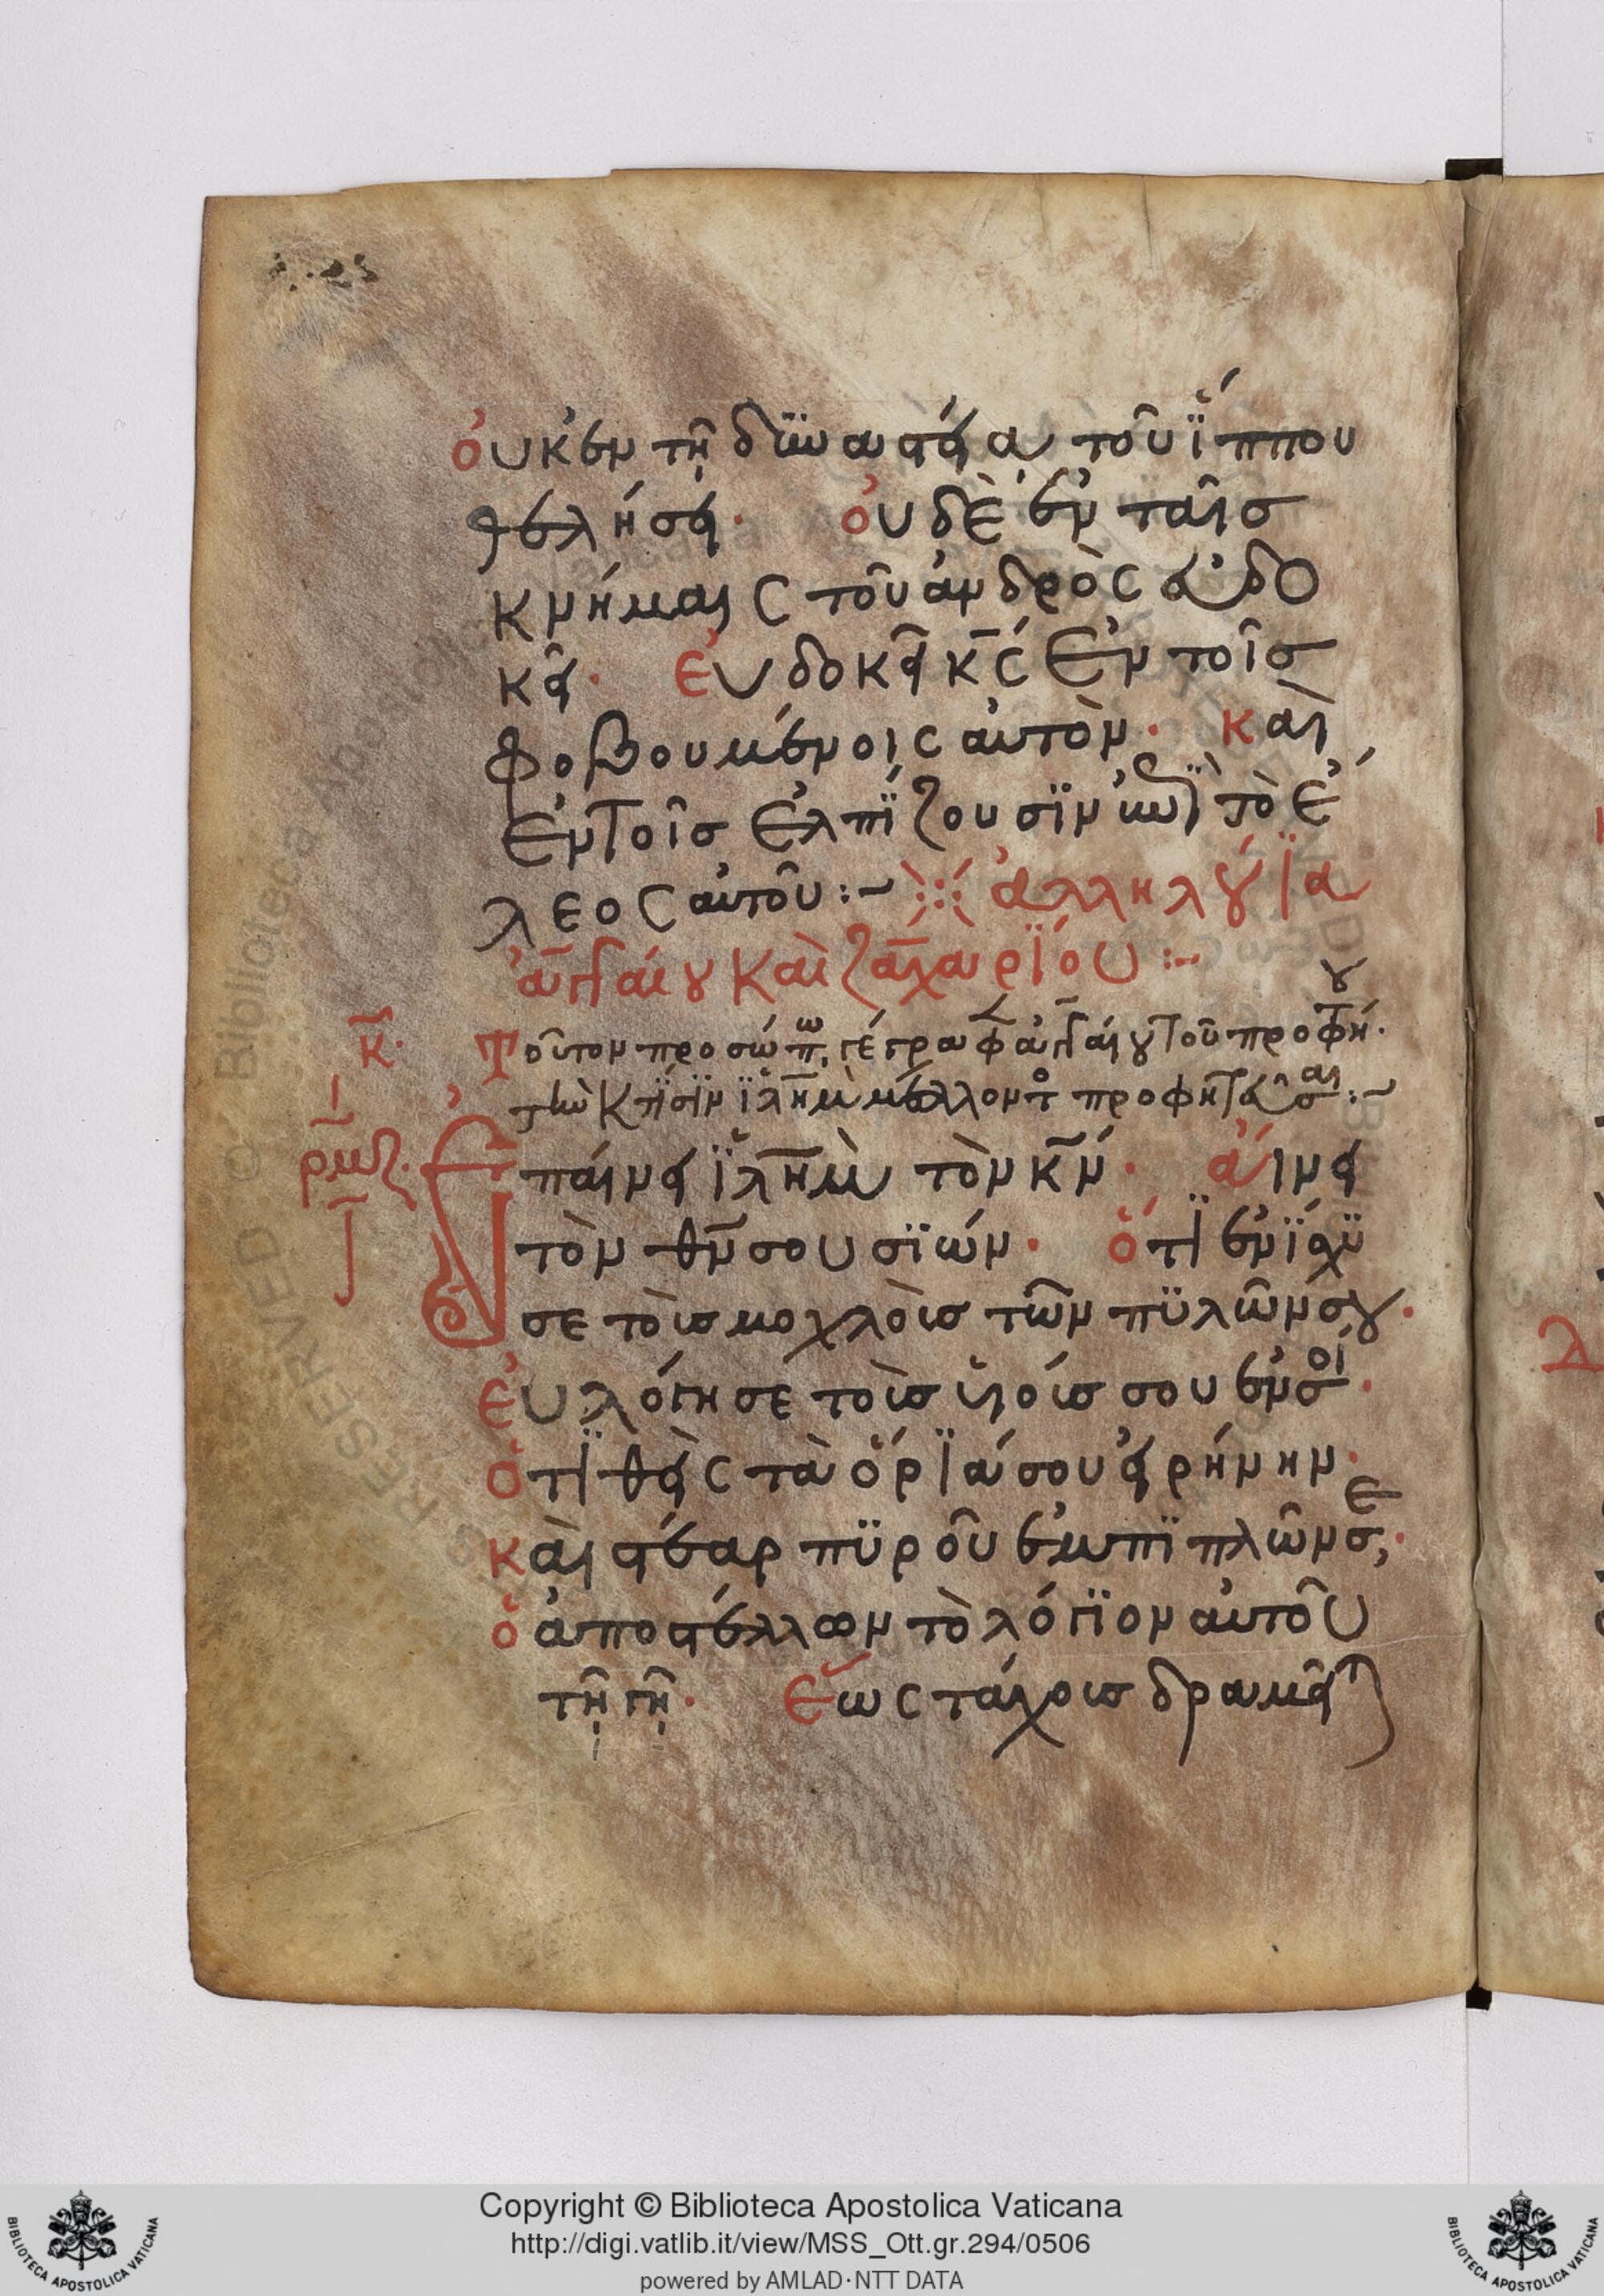 οὐκ ἐν τῇ δυναστεία τοῦ ἵππου
θελήσει· οὐδὲ ἐν ταῖσ
κνήμαις τοῦ ἀνδρὸς εὐδο
κεῖ· εὐδοκεῖ κ̅ς̅ ἐν τοῖσ
φοβουμένοις αὐτὸν· καὶ
ἐν τοῖσ ἐλπίζουσιν ἐπὶ τὸ ἔ
λεος αὐτοῦ :~ ἀλληλούϊα
ἀγγαίου καὶ ζαχαρίου :~
κ̅· Τοῦτον προσώπω γέγραφ ἀγγαίου τοῦ προφή·
τὴν κτίσιν ϊλ̅η̅μ̅ μέλλοντ προφητεῦσαι :~
ρμζ· Ἐπαίνει ϊλ̅η̅μ̅ τὸν κ̅ν̅· αἴνει
τὸν θ̅ν̅ σου σϊών· ὅτι ἐνίσχυ
σε τοὺσ μοχλοὺσ τῶν πυλῶν σου·
εὐλόγησε τοὺσ υἱούσ σου ἐν σοί·
ὁ τιθεὶς τὰ ὅριά σου εἰρήνην·
καὶ στέαρ πυροῦ ἐμπιπλῶν σε·
ὁ ἀποστέλλων τὸ λόγιον αὐτοῦ
τῇ γῇ· ἕως τάχουσ δραμεῖ
Copyright © Biblioteca Apostolica Vaticana
http://digi.vatlib.it/view/MSS_Ott.gr.294/0506
powered by AMLAD·NTT DATA
BIBLIOTECA APOSTOLICA VATICANA
BIBLIOTECA APOSTOLICA VATICANA